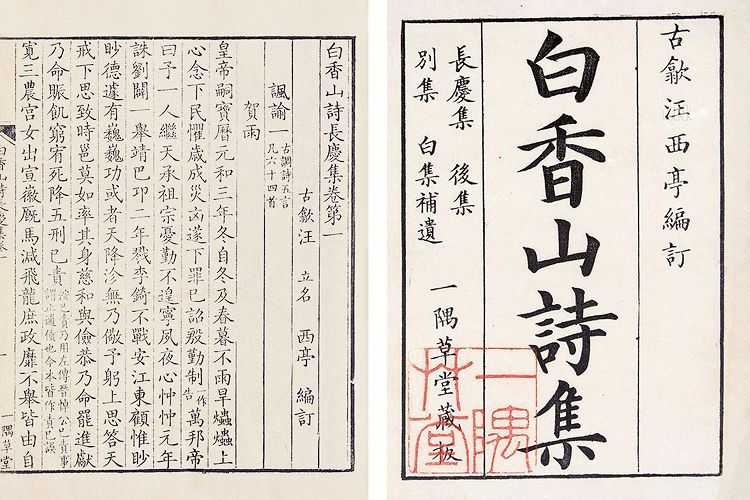 古歙汪西亭編訂
白香山詩集
長慶集 後集
別集 白集補遺
一隅草堂藏板
一隅草堂
白香山詩長慶集卷第一
古歙汪 立名 西亭 編訂
諷諭一 古調詩五言 凡六十四首
賀雨
皇帝嗣寶曆元和三年冬自冬及春暮不雨旱爞爞上
心念下民懼歲成災凶遂下罪己詔殷勤制一作告萬邦帝
曰予一人繼天承祖宗憂勤不遑寧夙夜心忡忡元年
誅劉闢一舉靖巴卭二年戮李錡不戰安江東顧惟眇
眇德遽有巍巍功或者天降沴無乃儆予躬上思答天
戒下思致時邕莫如率其身慈和與儉恭乃命罷進獻
乃命賑飢窮宥死降五刑已責 已責乃用左傳晉悼公已責事 謂止逋債也今本皆作責己誤
寬三農宮女出宣徽廐馬減飛龍庶政靡不舉皆由自
白香山詩長慶集卷一
一隅草堂